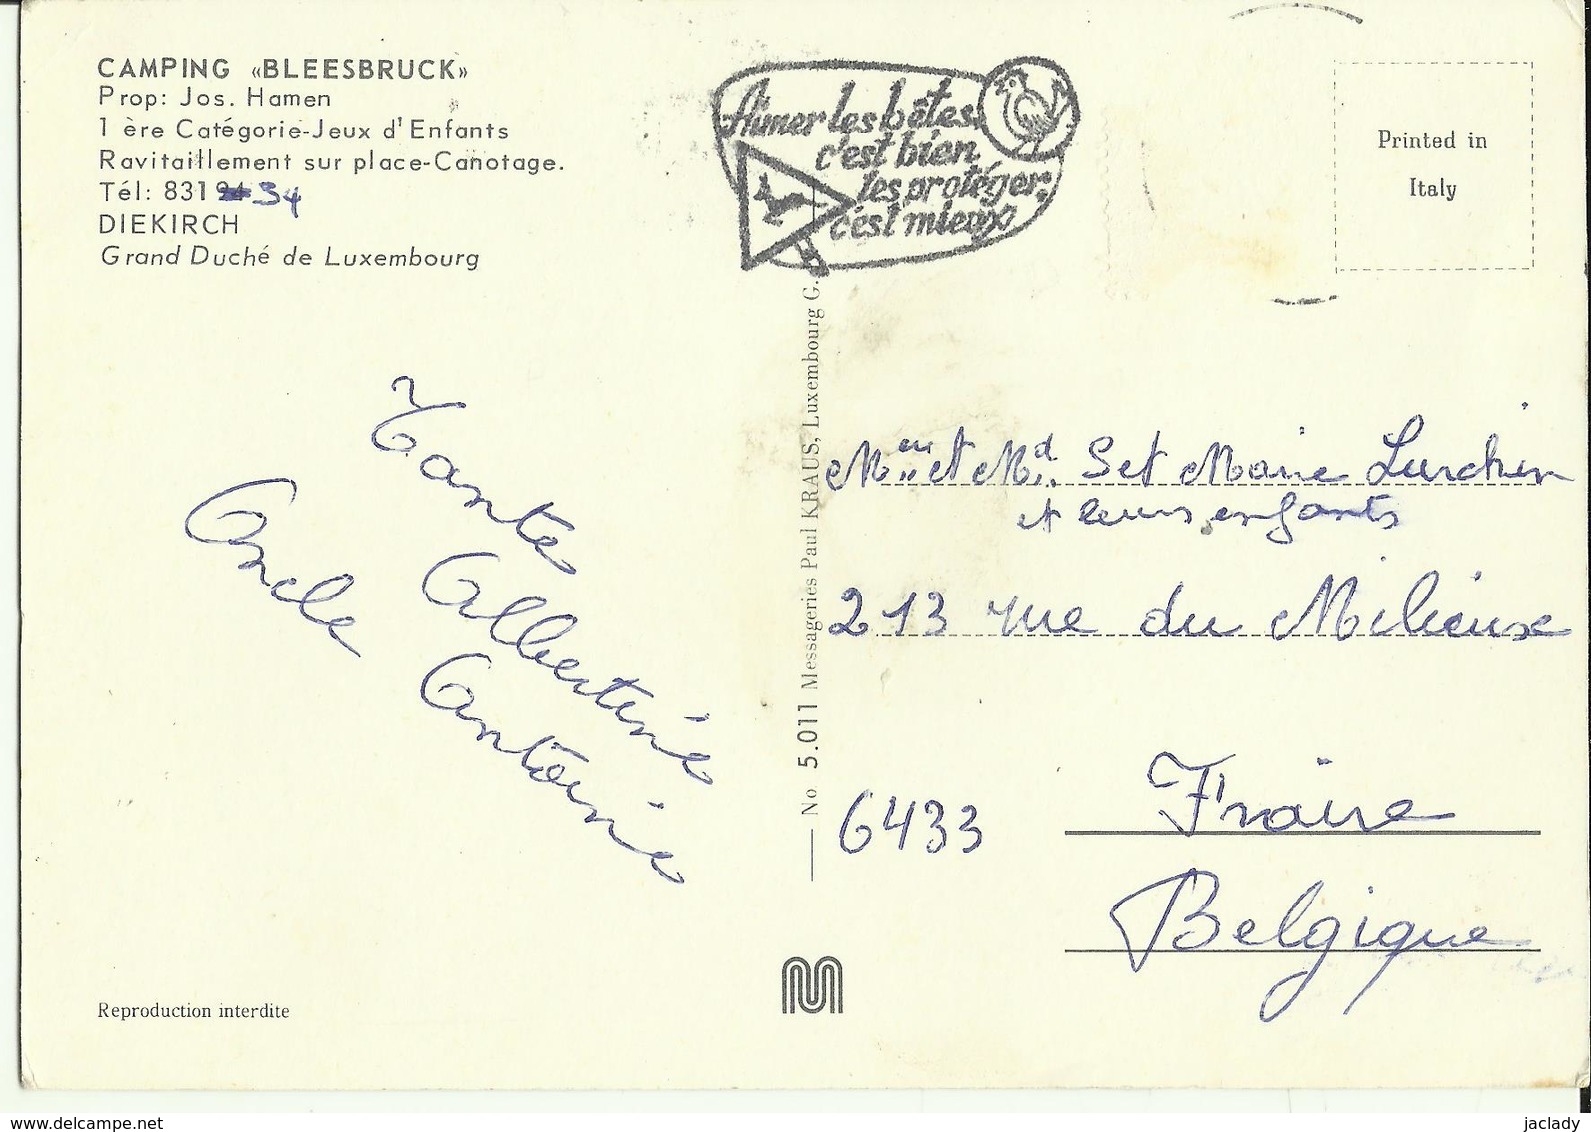 CAMPING «BLEESBRUCK»
Prop: Jos. Hamen
1 ère Catégorie-Jeux d'Enfants
Ravitaillement sur place-Canotage.
Tél: 831 34
DIEKIRCH
Grand Duché de Luxembourg
Aimer les bêtes
c'est bien,
les protéger
c'est mieux
Printed in
Italy
Tante Albertine
Oncle Antoine
No 5.011 Messageries Paul KRAUS, Luxembourg G.
et Marie
et leurs enfants
213 rue du
6433 Fraire
Belgique
Reproduction interdite
www.delcampe.net
jaclady